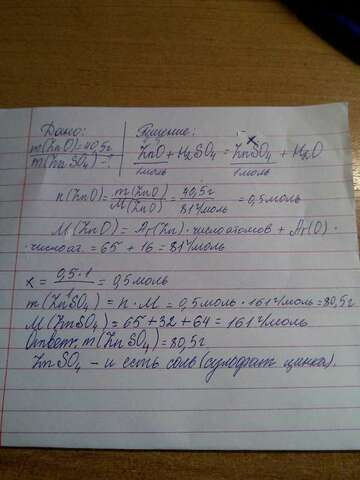 Дано: Решение:
x
m(ZnO)=40,5г ZnO + H2SO4 = ZnSO4 + H2O
m(ZnSO4)-? 1моль 1моль
n(ZnO) = m(ZnO) / M(ZnO) = 40,5г / 81г/моль = 0,5моль
M(ZnO) = Ar(Zn)·числоатомов + Ar(O)·
·числоат. = 65 + 16 = 81г/моль
x = 0,5·1 / 1 = 0,5моль
m(ZnSO4) = n·M = 0,5моль·161г/моль=80,5г
M(ZnSO4) = 65+32+64 = 161г/моль
Ответ: m(ZnSO4)=80,5г
ZnSO4 - и есть соль (сульфат цинка).